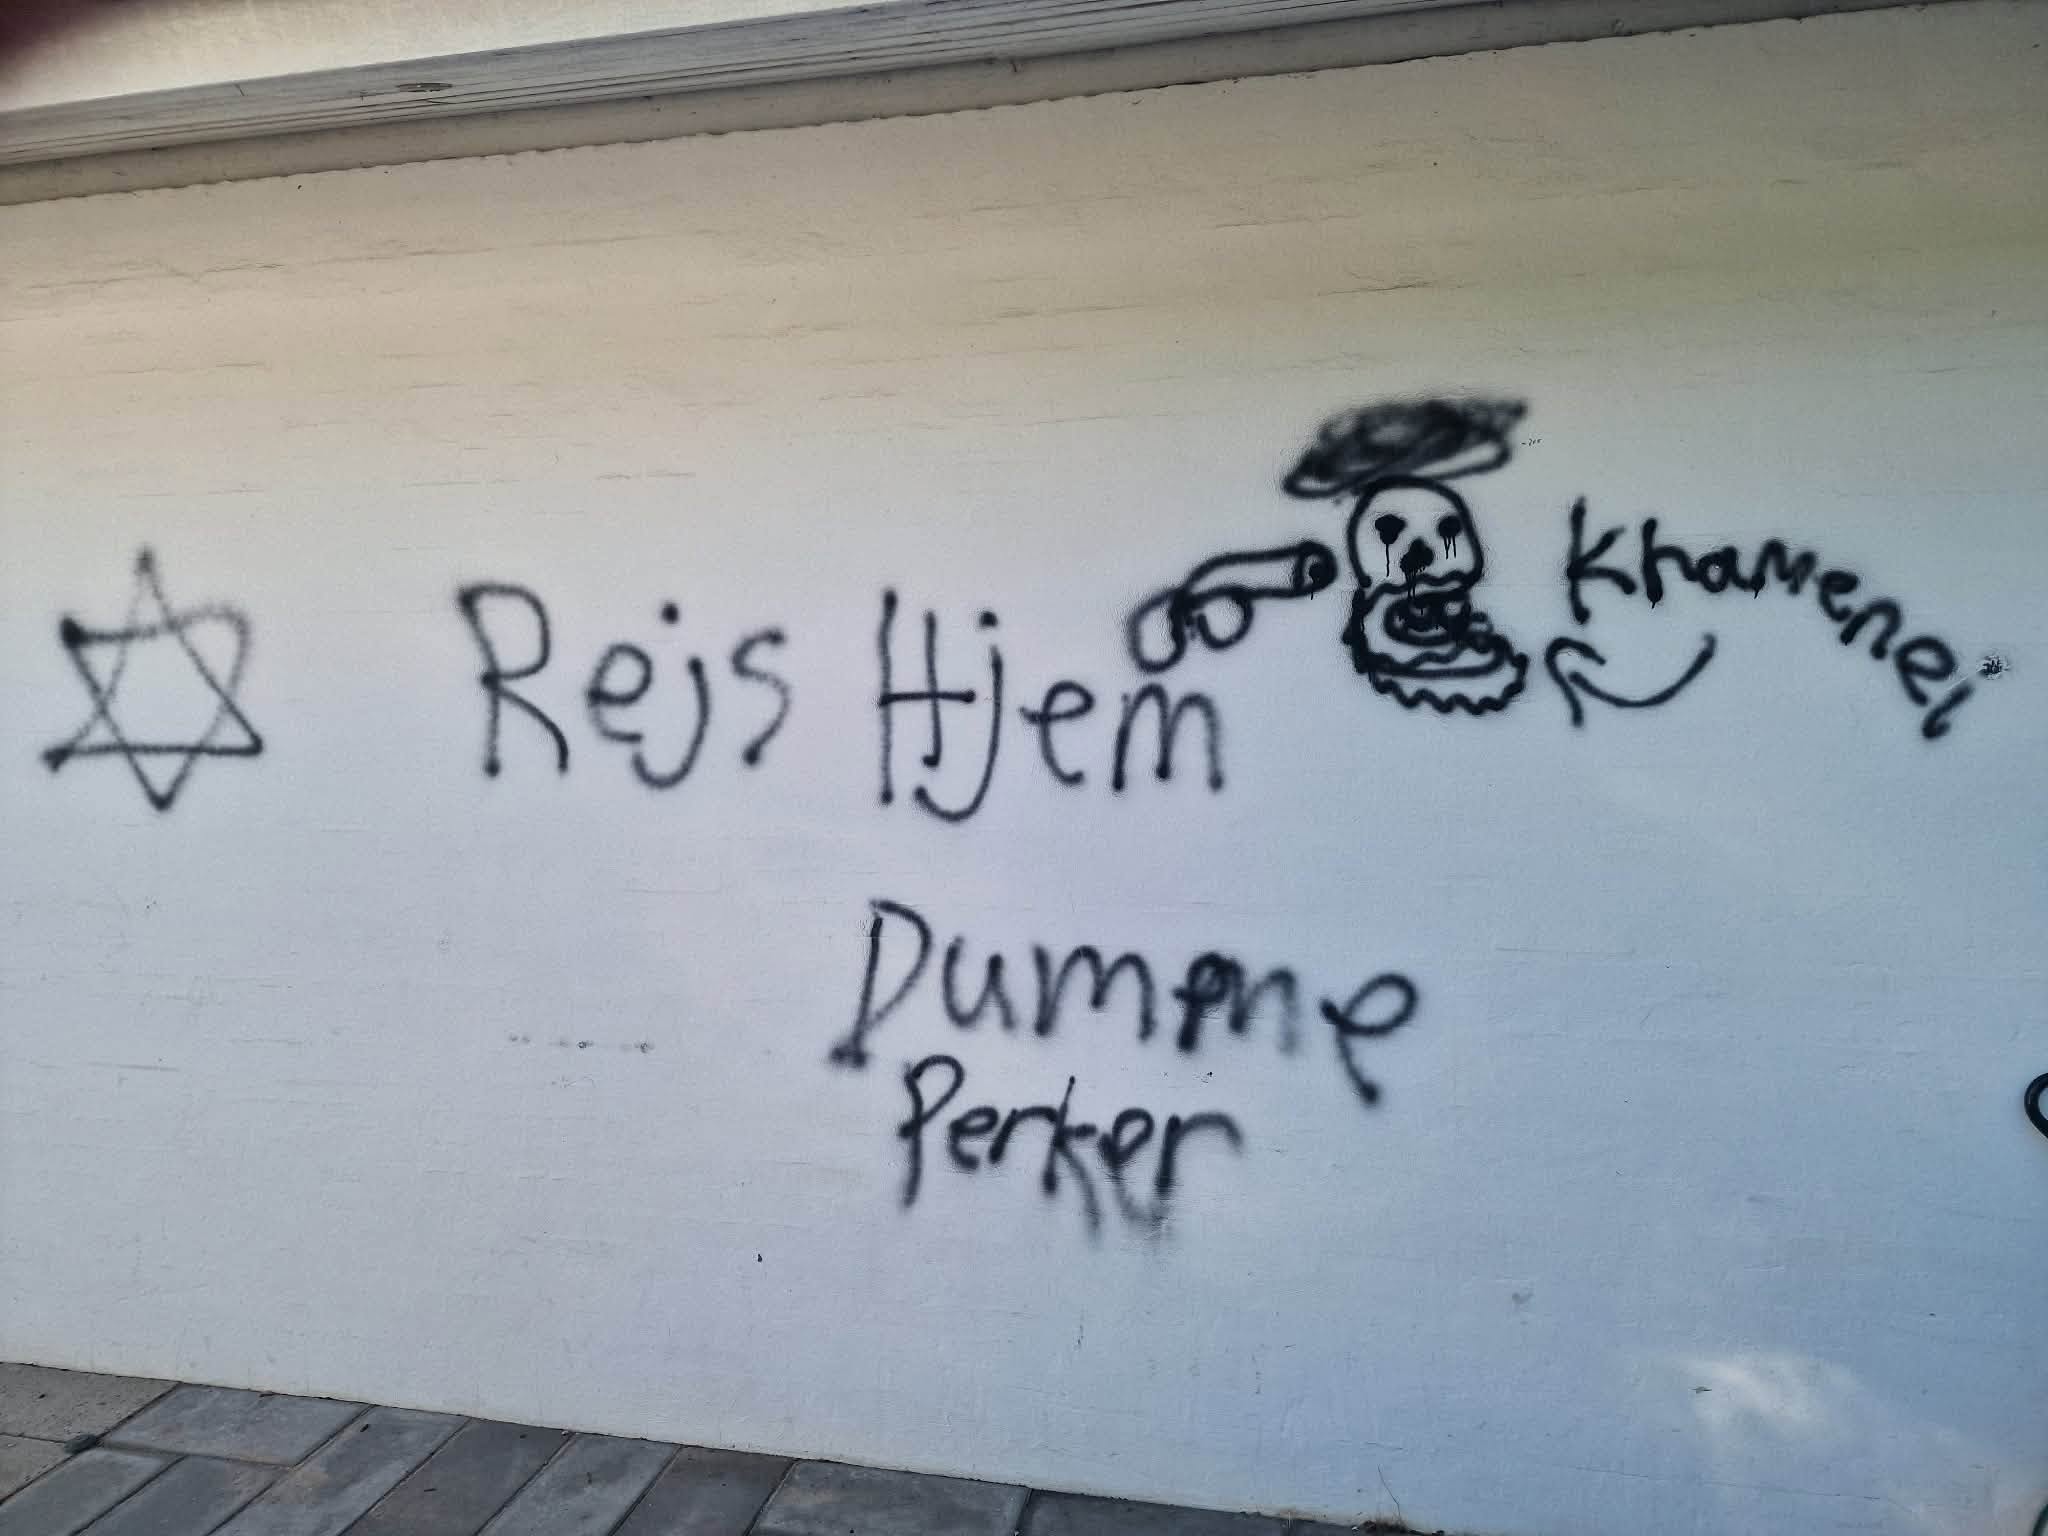 Rejs Hjem
Khamenei
Dumme
Perker